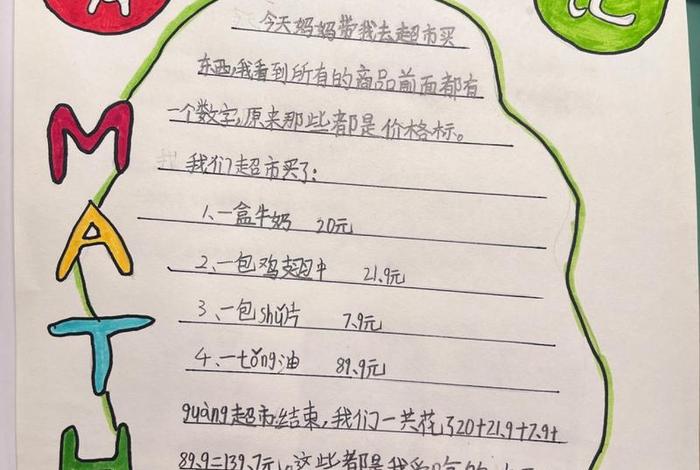 记
今天妈妈带我去超市买
东西,我看到所有的商品前面都有
一个数字,原来那些都是价格标。
我们超市买了:
1、一盒牛奶 20元
2、一包鸡翅中 21.9元
3、一包shǔ片 7.9元
4、一tǒng油 89.9元
guàng超市结束,我们一共花了20+21.9+7.9+
89.9=139.7元。这些都是我
MATH